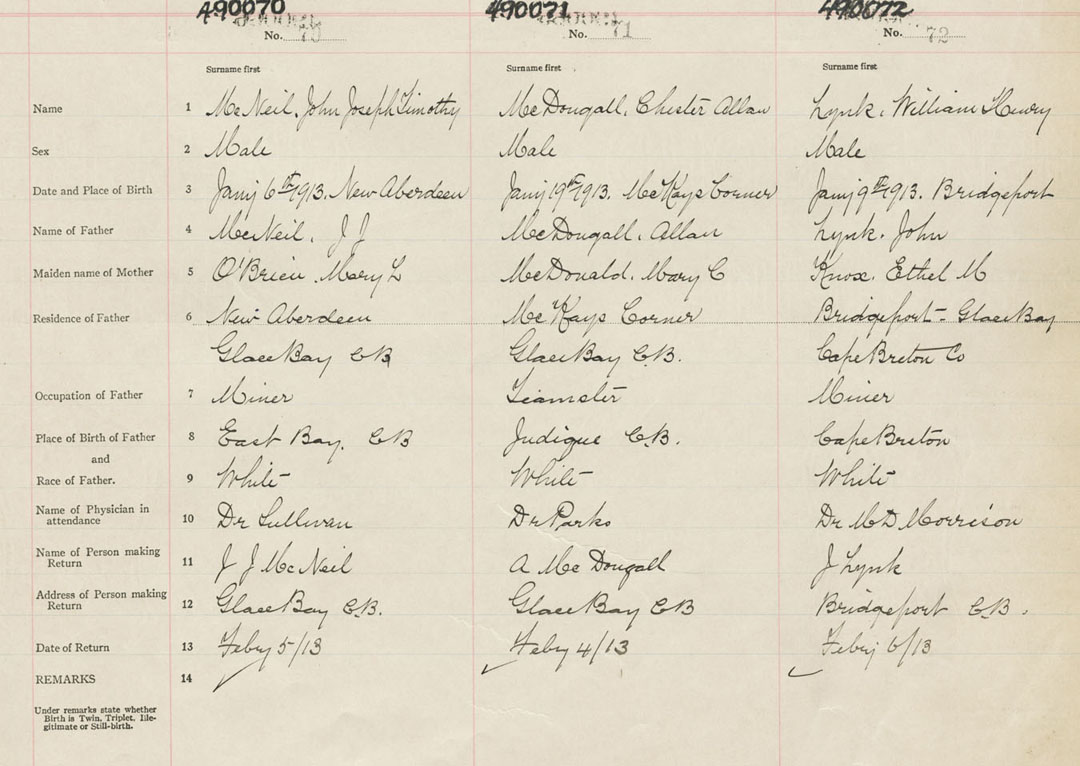 490070 490071 490072
No. 70 No. 71 No. 72
Surname first Surname first Surname first
Name 1 McNeil, John Joseph Timothy McDougall, Chester Allan Lynk, William Henry
Sex 2 Male Male Male
Date and Place of Birth 3 Jany 6th 1913. New Aberdeen Jany 19th 1913. McKays Corner Jany 9th 1913. Bridgeport
Name of Father 4 McNeil, J J McDougall, Allan Lynk. John
Maiden name of Mother 5 O'Brien, Mary L McDonald. Mary C Knox. Ethel M
Residence of Father 6 New Aberdeen McKays Corner Bridgeport - Glace Bay
Glace Bay CB Glace Bay C.B. Cape Breton Co
Occupation of Father 7 Miner Teamster Miner
Place of Birth of Father 8 East Bay, CB Judique C.B. Cape Breton
and
Race of Father. 9 White White White
Name of Physician in
attendance 10 Dr Sullivan Dr Parks Dr M D Morrison
Name of Person making
Return 11 J J McNeil A McDougall J Lynk
Address of Person making
Return 12 Glace Bay C.B. Glace Bay CB Bridgeport C.B.
Date of Return 13 Feby 5/13 Feby 4/13 Feby 6/13
REMARKS 14
Under remarks state whether
Birth is Twin, Triplet, Ille-
gitimate or Still-birth.